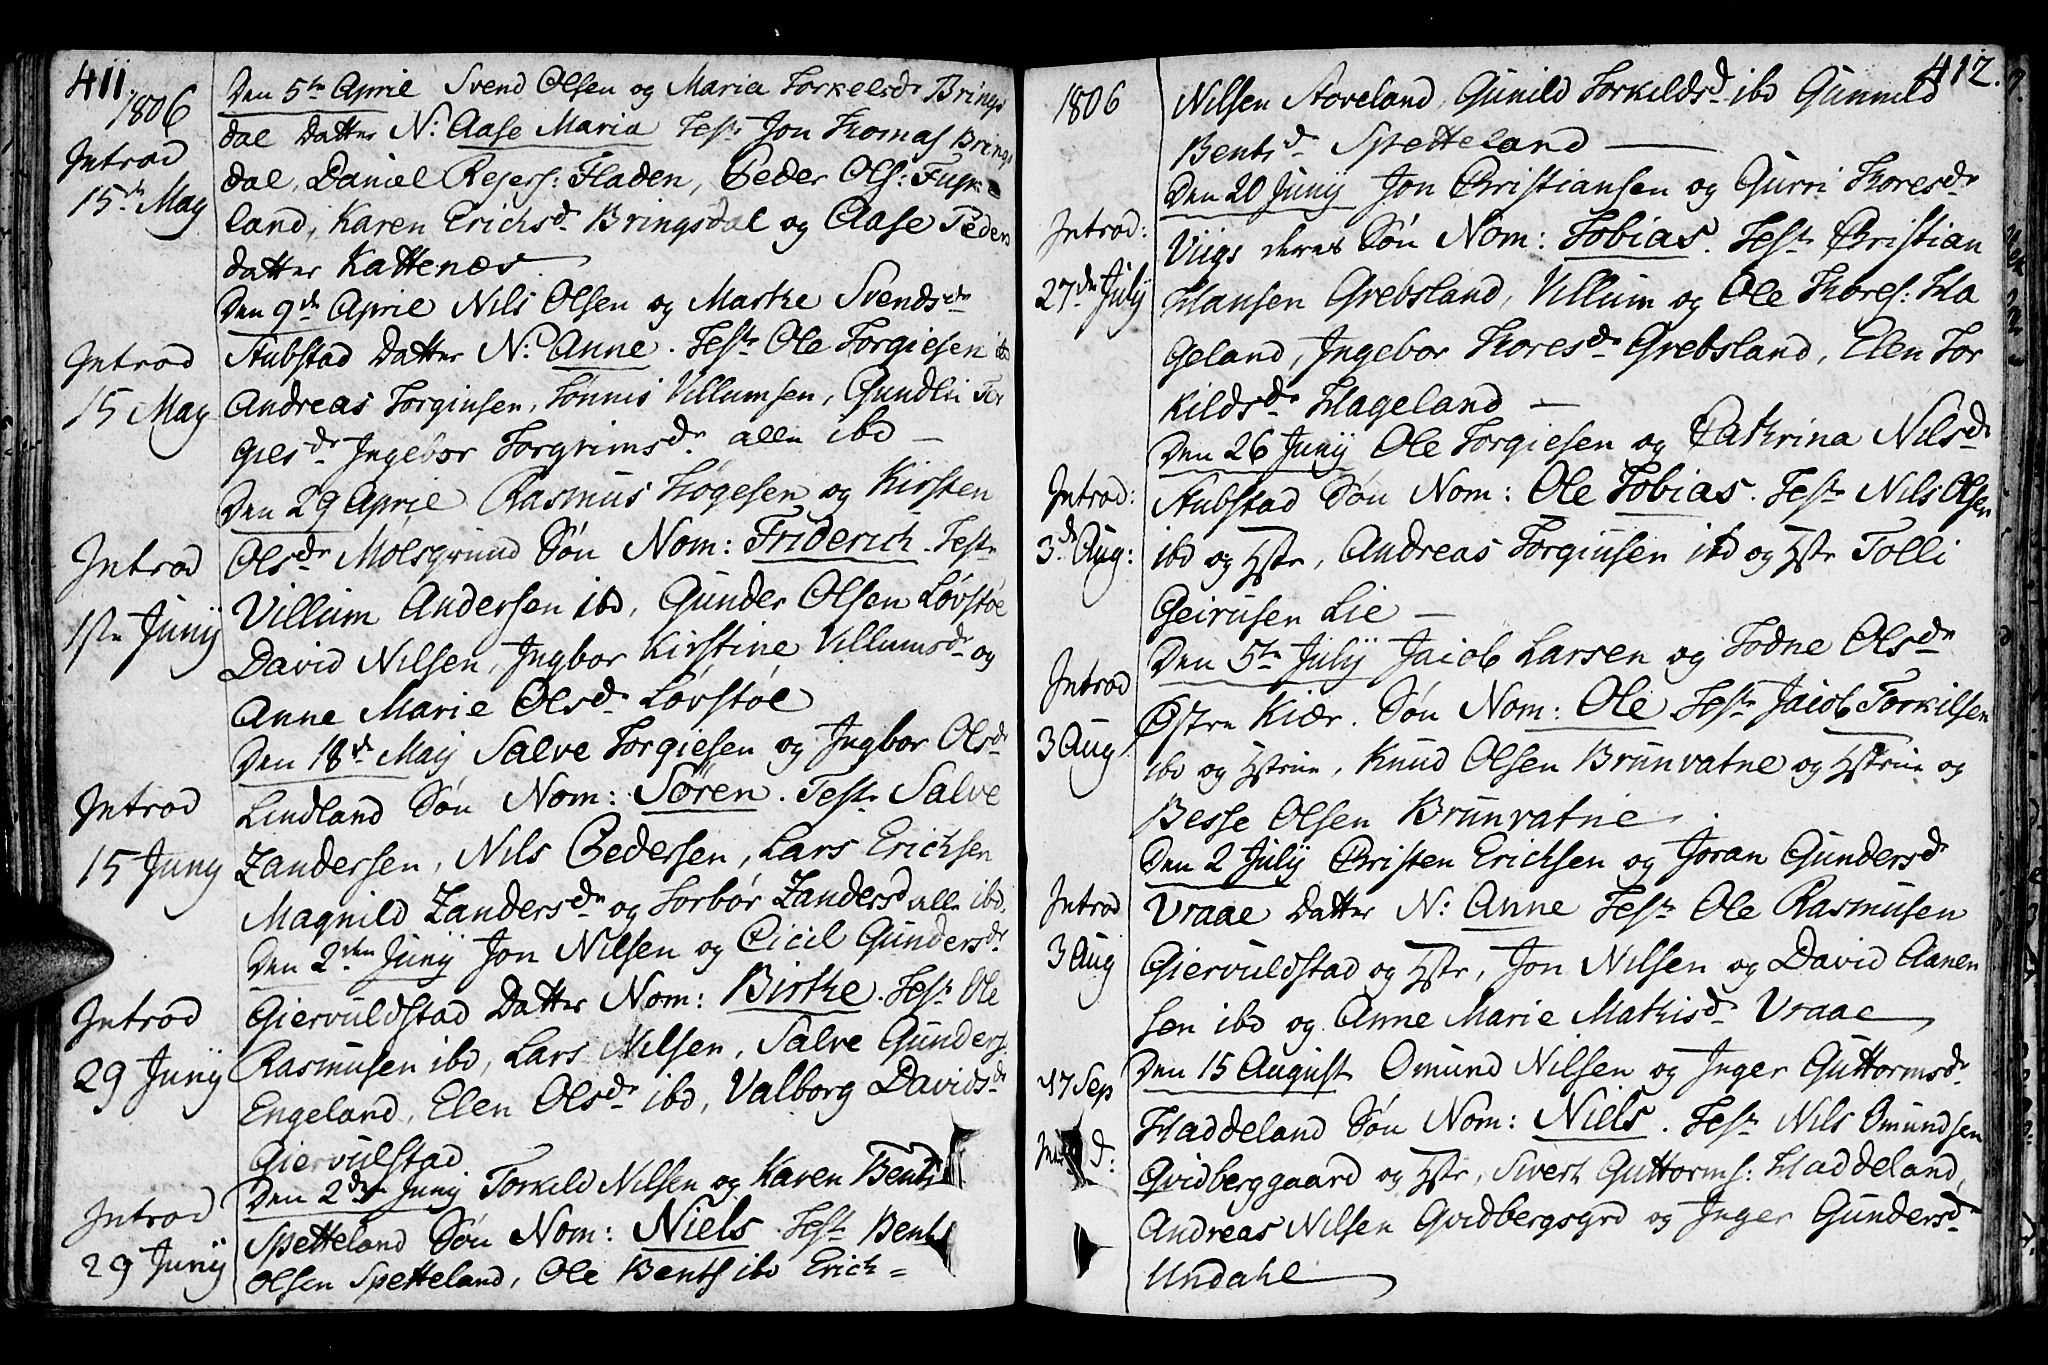 411.
1806
Den 5te April Svend Olsen og Maria Torkelsdr Brings
dal Datter N: Aase Maria Test: Jon Thomas Brings
dal, Daniel Rejers: Fladen, Peder Ols: Fusk
land, Karen Erichsdr Bringsdal og Aase Peders
datter Kattenes
Introd
15de May
Den 9de April Nils Olsen og Marthe Svendsdr
Stubstad Datter N: Anne. Test: Ole Torgiesen ibd
Andreas Torgiusen, Tønnis Villumsen, Gundli Tor
giesdr Ingebor Torgrimsdr alle ibd —
Introd
15 May
Den 29 April Rasmus Høgesen og Kirsten
Olsdr Molsgrund Søn Nom: Friderich. Test:
Villum Andersen ibd, Gunder Olsen Løvstøe
David Nilsen, Ingbor Kirstine Villumsdr og
Anne Marie Olsdr Løvstøe
Introd
1ste Junij
Den 18de Maij Salve Torgiesen og Ingbor Olsdr
Lindland Søn Nom: Søren. Test: Salve
Zandersen, Nils Pedersen, Lars Erichsen
Magnild Zandersdr og Torbør Zandersd alle ibd.
Introd
15 Juny
Den 2den Junij Jon Nilsen og Cicil Gundersdr
Giervuldstad Datter Nom: Birthe. Test: Ole
Rasmusen ibd, Lars Nilsen, Salve Gunders
Engeland, Elen Olsdr ibd, Valborg Davidsdr
Giervulstad
Introd
29 Junij
Den 2den Junij Torkild Nilsen og Karen Bents
Spetteland Søn Nom: Niels. Test: Bent
Olsen Spetteland, Ole Bents ibd Erich=
Introd
29 Junij
412.
1806
Nilsen Stoveland, Gunild Torkildsd ibd Gunnild
Bentsdr Spetteland —
Den 20 Junij Jon Christiansen og Gurri Thoresdr
Viigs deres Søn Nom: Tobias. Test: Christian
Hansen Grebsland, Villum og Ole Thores: Ha
geland, Ingebor Thoresdr Grebsland, Elen Tor
kildsdr Hageland —
Introd:
27de Julij
Den 26 Junij Ole Torgiesen og Cathrina Nilsdr
Stubstad Søn Nom: Ole Tobias. Test: Nils Olsen
ibd og Hstr, Andreas Torgiusen ibd og Hstr Tolli
Geirusen Lie —
Introd:
3de Aug:
Den 5te Julij Jacob Larsen og Todne Olsdr
Østre Kiær. Søn Nom: Ole Test: Jacob Torkilsen
ibd og Hstrue, Knud Olsen Brunvatne og Hstrue og
Besse Olsen Brunvatne.
Introd
3 Aug
Den 2 Julij Christen Erichsen og Joran Gundersdr
Vraae Datter N: Anne Test: Ole Rasmusen
Giervuldstad og Hstr, Jon Nilsen og David Aanen
sen ibd og Anne Marie Mathisdr Vraae
Introd
3 Aug
Den 15 August Omund Nilsen og Inger Guttormsdr
Haddeland Søn Nom: Niels. Test: Nils Omundsen
Qvidberggaard og Hstr, Sivert Guttorms: Haddeland,
Andreas Nilsen Qvidbergsgrd og Inger Gundersdr
Undahl
17 Sep